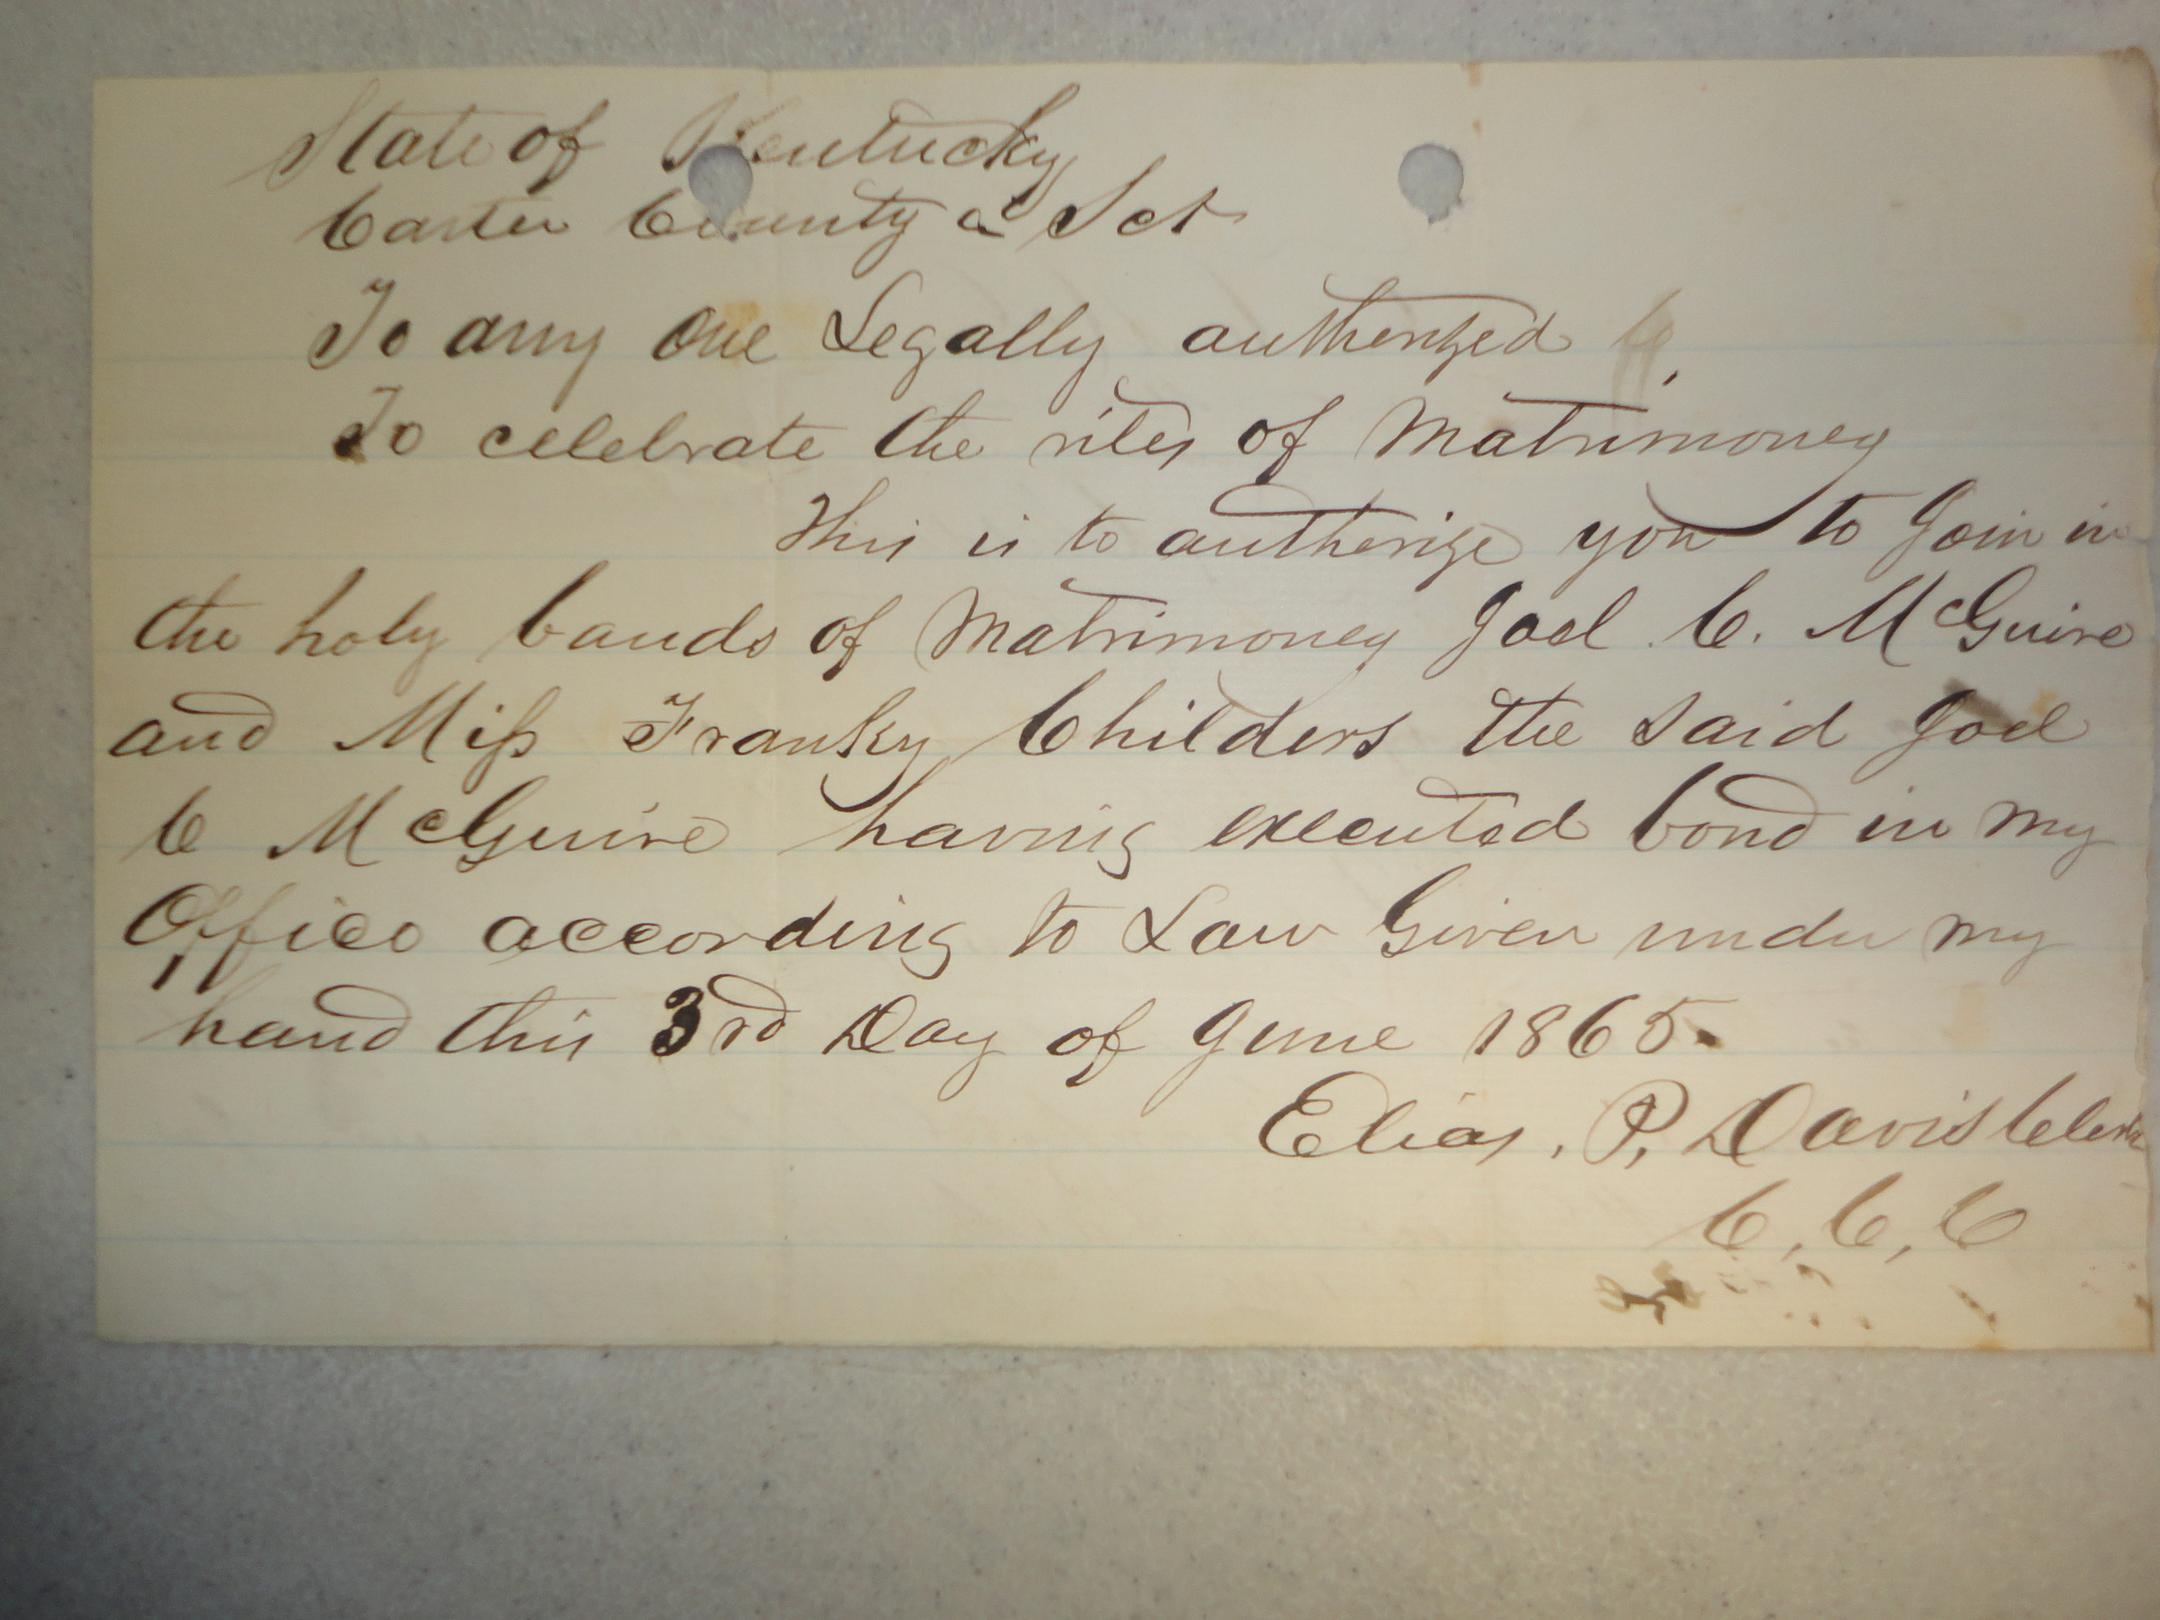 State of Kentucky
Carter County & Sct
To any one Legally autherized
To celebrate the rites of Matrimoney
This is to autherize you to Join in
the holy bands of Matrimoney Joel C. McGuire
and Miss Franky Childers the said Joel
C McGuire having executed bond in my
Office according to Law Given under my
hand this 3rd Day of June 1865.
Elias, P, Davis Clerk
C, C, C